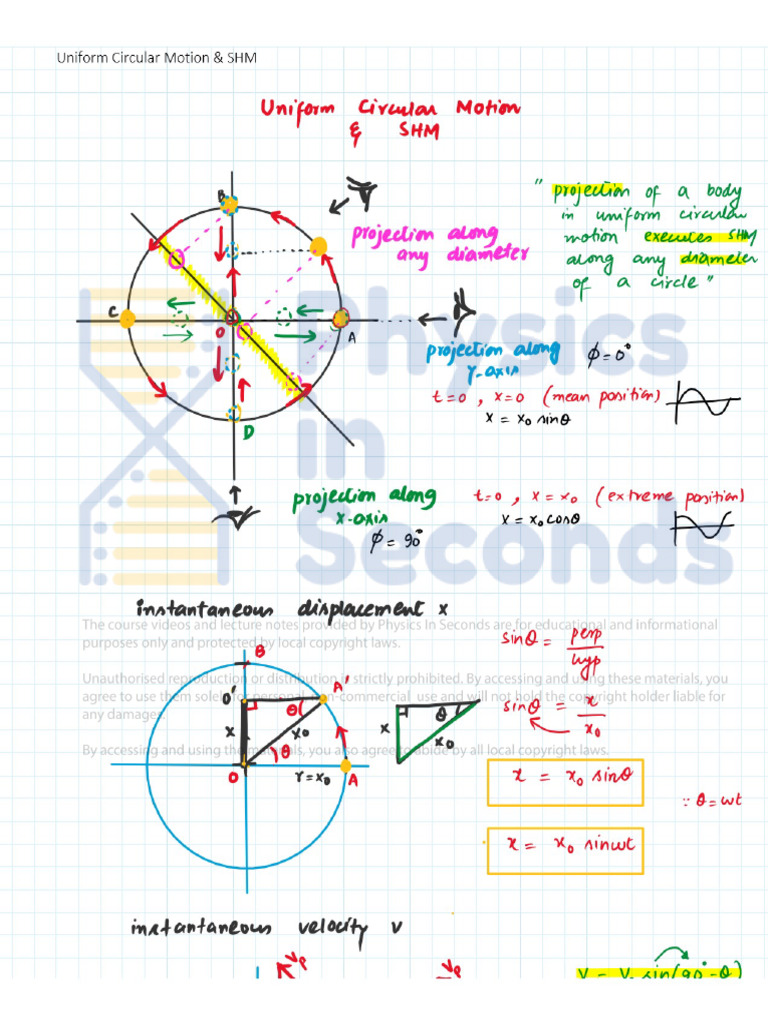 Uniform Circular Motion & SHM
Uniform Circular Motion
& SHM
B
projection along
any diameter
"projection of a body
in uniform circular
motion executes SHM
along any diameter
of a circle"
C
O
A
D
projection along
Y-axis
ϕ=0°
t=0, x=0 (mean position)
x = x₀ sinθ
projection along
x-axis
ϕ = 90°
t=0, x = x₀ (extreme position)
x = x₀cosθ
Physics
in
Seconds
instantaneous displacement x
The course videos and lecture notes provided by Physics In Seconds are for educational and informational
purposes only and protected by local copyright laws.
Unauthorised reproduction or distribution is strictly prohibited. By accessing and using these materials, you
agree to use them solely for personal, non-commercial use and will not hold the copyright holder liable for
any damages.
By accessing and using the materials, you also agree to abide by all local copyright laws.
B
O'
A'
θ
x
x₀
θ
O
r=x₀
A
x
θ
x₀
sinθ = perp
hyp
sinθ = x
x₀
x = x₀ sinθ
∵ θ=wt
x = x₀ sinwt
instantaneous velocity v
vₚ
vₚ
v = v₀ sin(90°-θ)